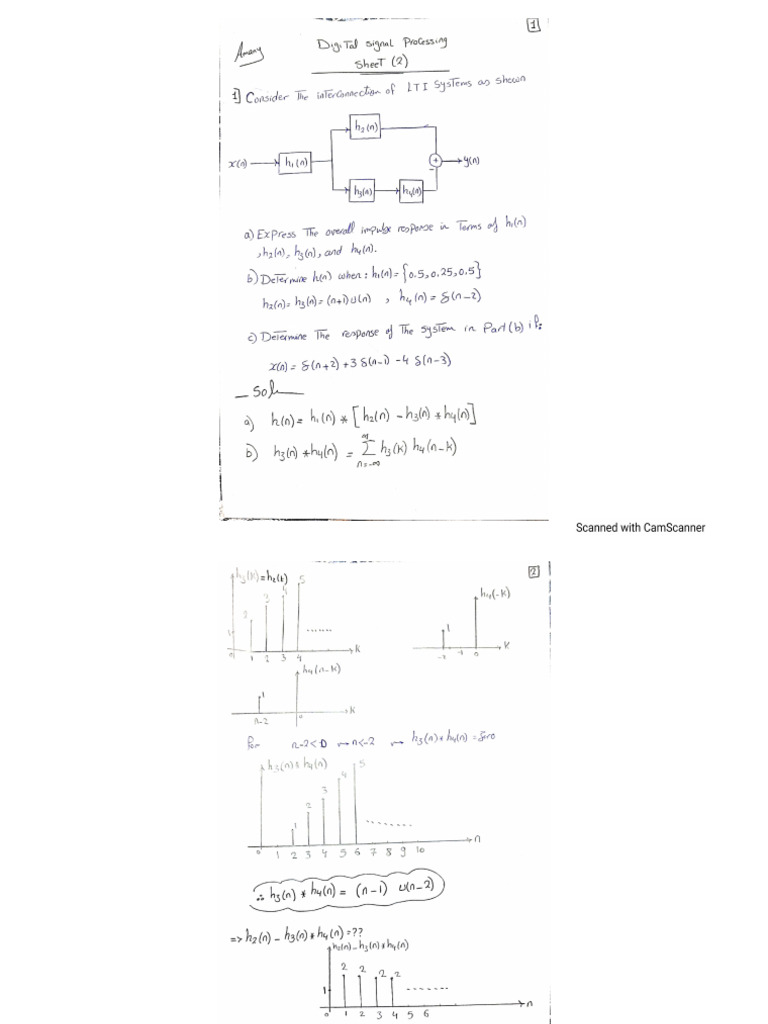 1
Amany
Digital signal Processing
Sheet (2)
1] Consider The interconnection of LTI Systems as shewn
h2(n)
x(n) h1(n) + y(n)
-
h3(n) h4(n)
a) Express The overall impulse response in Terms of h1(n)
, h2(n), h3(n), and h4(n).
b) Determine h(n) when: h1(n) = {0.5, 0.25, 0.5}
h2(n) = h3(n) = (n+1) u(n) , h4(n) = δ(n-2)
c) Determine The response of The system in Part(b) if:
x(n) = δ(n+2) + 3 δ(n-1) - 4 δ(n-3)
Sol
a) h(n) = h1(n) * [h2(n) - h3(n) * h4(n)]
b) h3(n) * h4(n) = ∞ Σ n=-∞ h3(k) h4(n-k)
Scanned with CamScanner
2
h3(k) = h2(k) 5
2 3 4
1 ........
0 1 2 3 4 k
h4(-k)
1
-2 -1 0 k
h4(n-k)
1
n-2 0 k
for n-2<0 → n<-2 → h3(n)*h4(n) = zero
h3(n) * h4(n)
1 2 3 4 5
0 1 2 3 4 5 6 7 8 9 10 n
∴ h3(n) * h4(n) = (n-1) u(n-2)
=> h2(n) - h3(n) * h4(n) = ??
h2(n) - h3(n) * h4(n)
2 2 2 2
1 ........
0 1 2 3 4 5 6 n